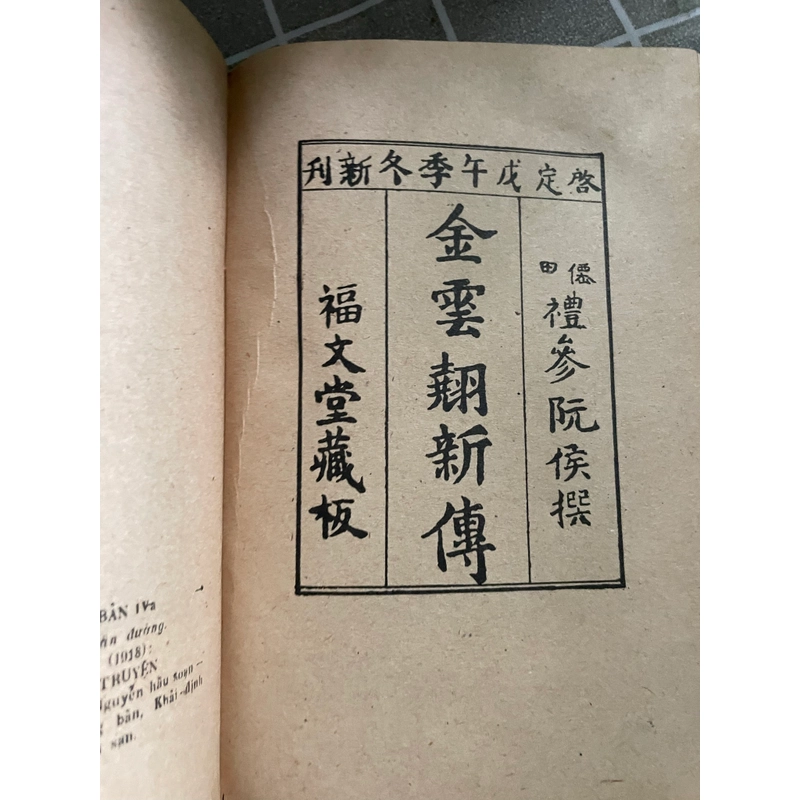 啓定戊午季冬新刊
僊田禮參阮侯撰
金雲翹新傳
福文堂藏板
BẢN IVa
đường.
(1918):
TRUYỆN
Nguyễn hầu soạn —
bản, Khải-định
san.